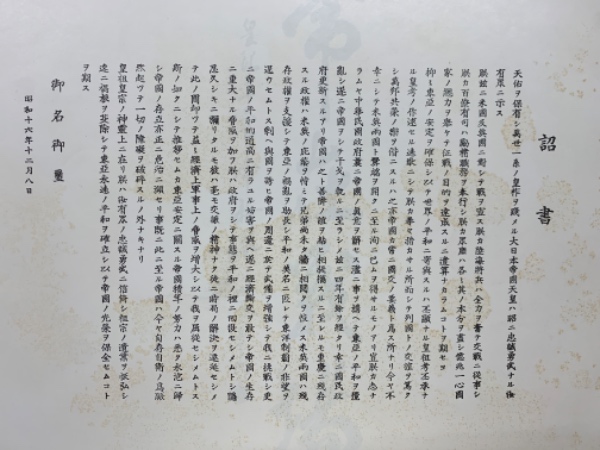 詔書
天佑ヲ保有シ萬世一系ノ皇祚ヲ踐メル大日本帝國天皇ハ昭ニ忠誠勇武ナル汝
有衆ニ示ス
朕茲ニ米國及英國ニ對シテ戰ヲ宣ス朕カ陸海將兵ハ全力ヲ奮テ交戰ニ從事シ
朕カ百僚有司ハ勵精職務ヲ奉行シ朕カ衆庶ハ各〻其ノ本分ヲ盡シ億兆一心國
家ノ總力ヲ擧ケテ征戰ノ目的ヲ達成スルニ遺算ナカラムコトヲ期セヨ
抑〻東亞ノ安定ヲ確保シ以テ世界ノ平和ニ寄與スルハ丕顯ナル皇祖考丕承ナ
ル皇考ノ作述セル遠猷ニシテ朕カ拳〻措カサル所而シテ列國トノ交誼ヲ篤ク
シ萬邦共榮ノ樂ヲ偕ニスルハ之亦帝國カ常ニ國交ノ要義ト爲ス所ナリ今ヤ不
幸ニシテ米英兩國ト釁端ヲ開クニ至ル洵ニ已ムヲ得サルモノアリ豈朕カ志ナ
ラムヤ中華民國政府曩ニ帝國ノ眞意ヲ解セス濫ニ事ヲ構ヘテ東亞ノ平和ヲ攪
亂シ遂ニ帝國ヲシテ干戈ヲ執ルニ至ラシメ茲ニ四年有餘ヲ經タリ幸ニ國民政
府更新スルアリ帝國ハ之ト善隣ノ誼ヲ結ヒ相提携スルニ至レルモ重慶ニ殘存
スル政權ハ米英ノ庇蔭ヲ恃ミテ兄弟尚未タ牆ニ相鬩クヲ悛メス米英兩國ハ殘
存政權ヲ支援シテ東亞ノ禍亂ヲ助長シ平和ノ美名ニ匿レテ東洋制覇ノ非望ヲ
逞ウセムトス剩ヘ與國ヲ誘ヒ帝國ノ周邊ニ於テ武備ヲ增強シテ我ニ挑戰シ更
ニ帝國ノ平和的通商ニ有ラユル妨害ヲ與ヘ遂ニ經濟斷交ヲ敢テシ帝國ノ生存
ニ重大ナル脅威ヲ加フ朕ハ政府ヲシテ事態ヲ平和ノ裡ニ囘復セシメムトシ隱
忍久シキニ彌リタルモ彼ハ毫モ交讓ノ精神ナク徒ニ時局ノ解決ヲ遷延セシメ
テ此ノ間却ツテ益〻經濟上軍事上ノ脅威ヲ增大シ以テ我ヲ屈從セシメムトス
斯ノ如クニシテ推移セムカ東亞安定ニ關スル帝國積年ノ努力ハ悉ク水泡ニ歸
シ帝國ノ存立亦正ニ危殆ニ瀕セリ事既ニ此ニ至ル帝國ハ今ヤ自存自衞ノ爲蹶
然起ツテ一切ノ障礙ヲ破碎スルノ外ナキナリ
皇祖皇宗ノ神靈上ニ在リ朕ハ汝有衆ノ忠誠勇武ニ信倚シ祖宗ノ遺業ヲ恢弘シ
速ニ禍根ヲ芟除シテ東亞永遠ノ平和ヲ確立シ以テ帝國ノ光榮ヲ保全セムコト
ヲ期ス
御名御璽
昭和十六年十二月八日